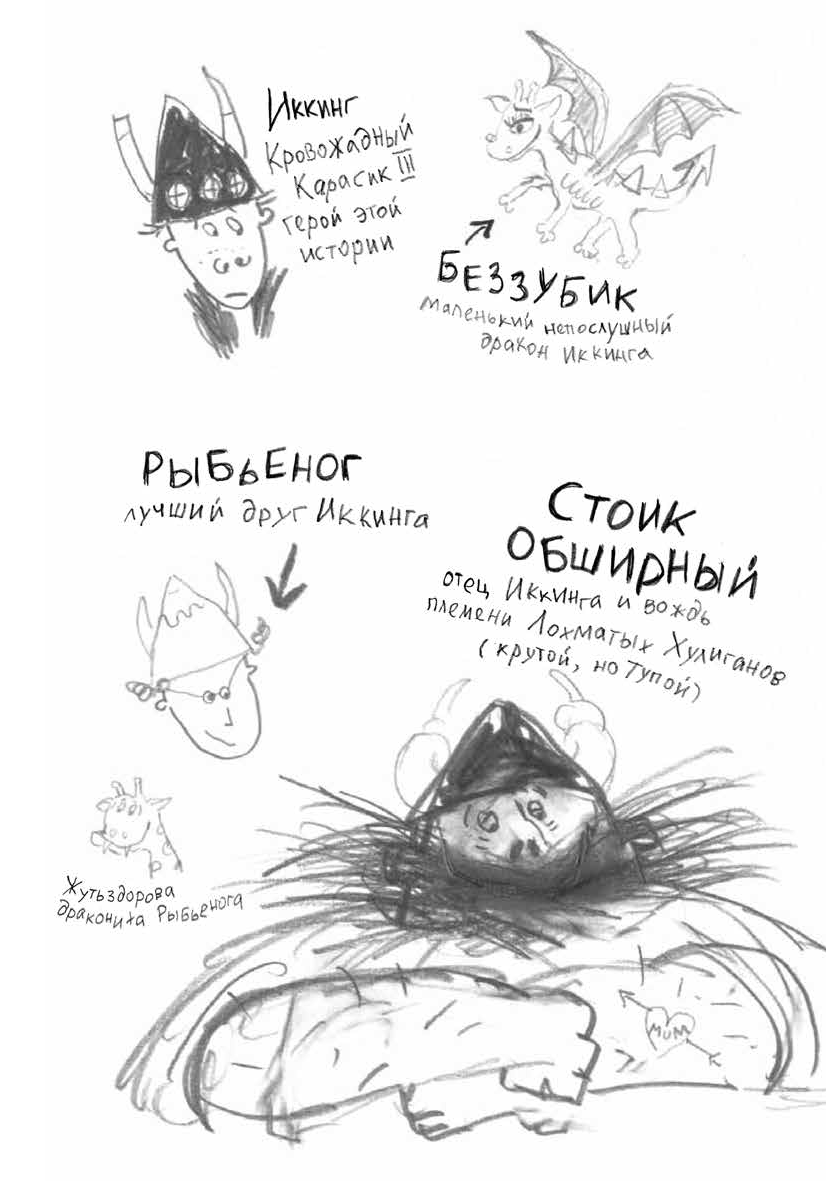 Иккинг
Кровожадный
Карасик III
герой этой
истории
БЕЗЗУБИК
маленький непослушный
дракон Иккинга
РЫБЬЕНОГ
лучший друг Иккинга
СТОИК
ОБШИРНЫЙ
отец Иккинга и вождь
племени Лохматых Хулиганов
(крутой, но тупой)
Жутьздорова
дракониха Рыбьенога
MUM